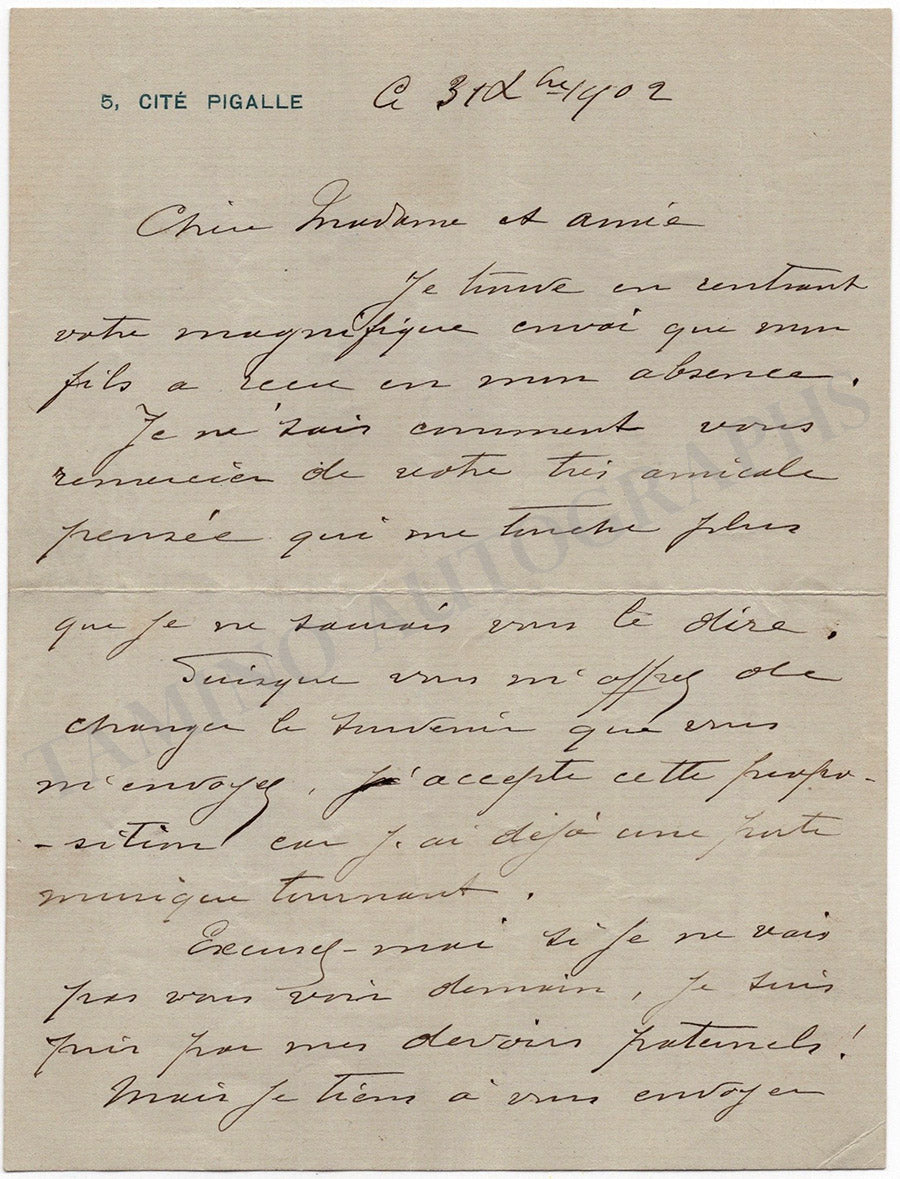 5, CITÉ PIGALLE
Ce 31 Xbre 1902
Chère Madame et amie
Je trouve en rentrant
votre magnifique envoi que mon
fils a reçu en mon absence.
Je ne sais comment vous
remercier de votre très amicale
pensée qui me touche plus
que je ne saurais vous le dire.
Puisque vous m'offrez de
changer le souvenir que vous
m'envoyez, j'accepte cette propo-
-sition car j'ai déjà une porte
musique tournant.
Excusez-moi si je ne vais
pas vous voir demain, je suis
pris par mes devoirs paternels!
Mais je tiens à vous envoyer
TAMINO AUTOGRAPHS